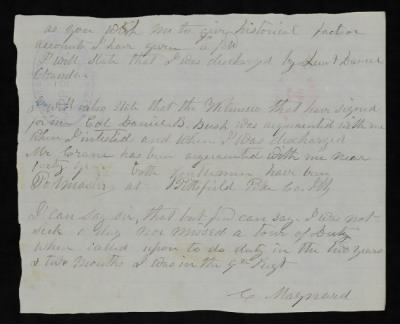 as you wish me to give historical fact or
accounts I have given a few
I will state that I was discharged by Lieut Daniel
I will also state that the Witnesses that have signed
for me Col Daniel B. Bush was aquainted with me
When I inlested and when I Was discharged
Mr Crane has been aquainted with me near
forty years both gentlemen have been
Postmasters at Pittsfield Pike Co. Ills
I can say sir, that but few can say. I was not
sick a day nor missed a tour of Duty
when called upon to do duty in the two years
& two months I was in the 9th Regt
C Maynard